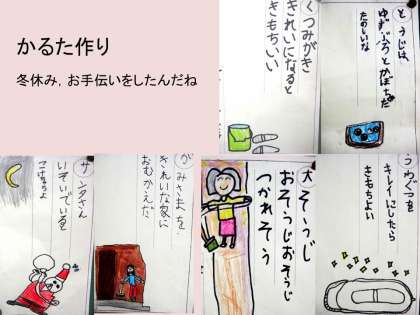 かるた作り
冬休み，お手伝いをしたんだね
くつみがき
きれいになると
きもちいい
とうじは、
ゆずぶろとかぼちゃだ
たのしいな
サンタさん
いそいでいるよ
かみさまを
きれいな家に
おむかえだ
大そうじ
おそうじおそうじ
つかれそう
うわぐつを
キレイにしたら
きもちよい